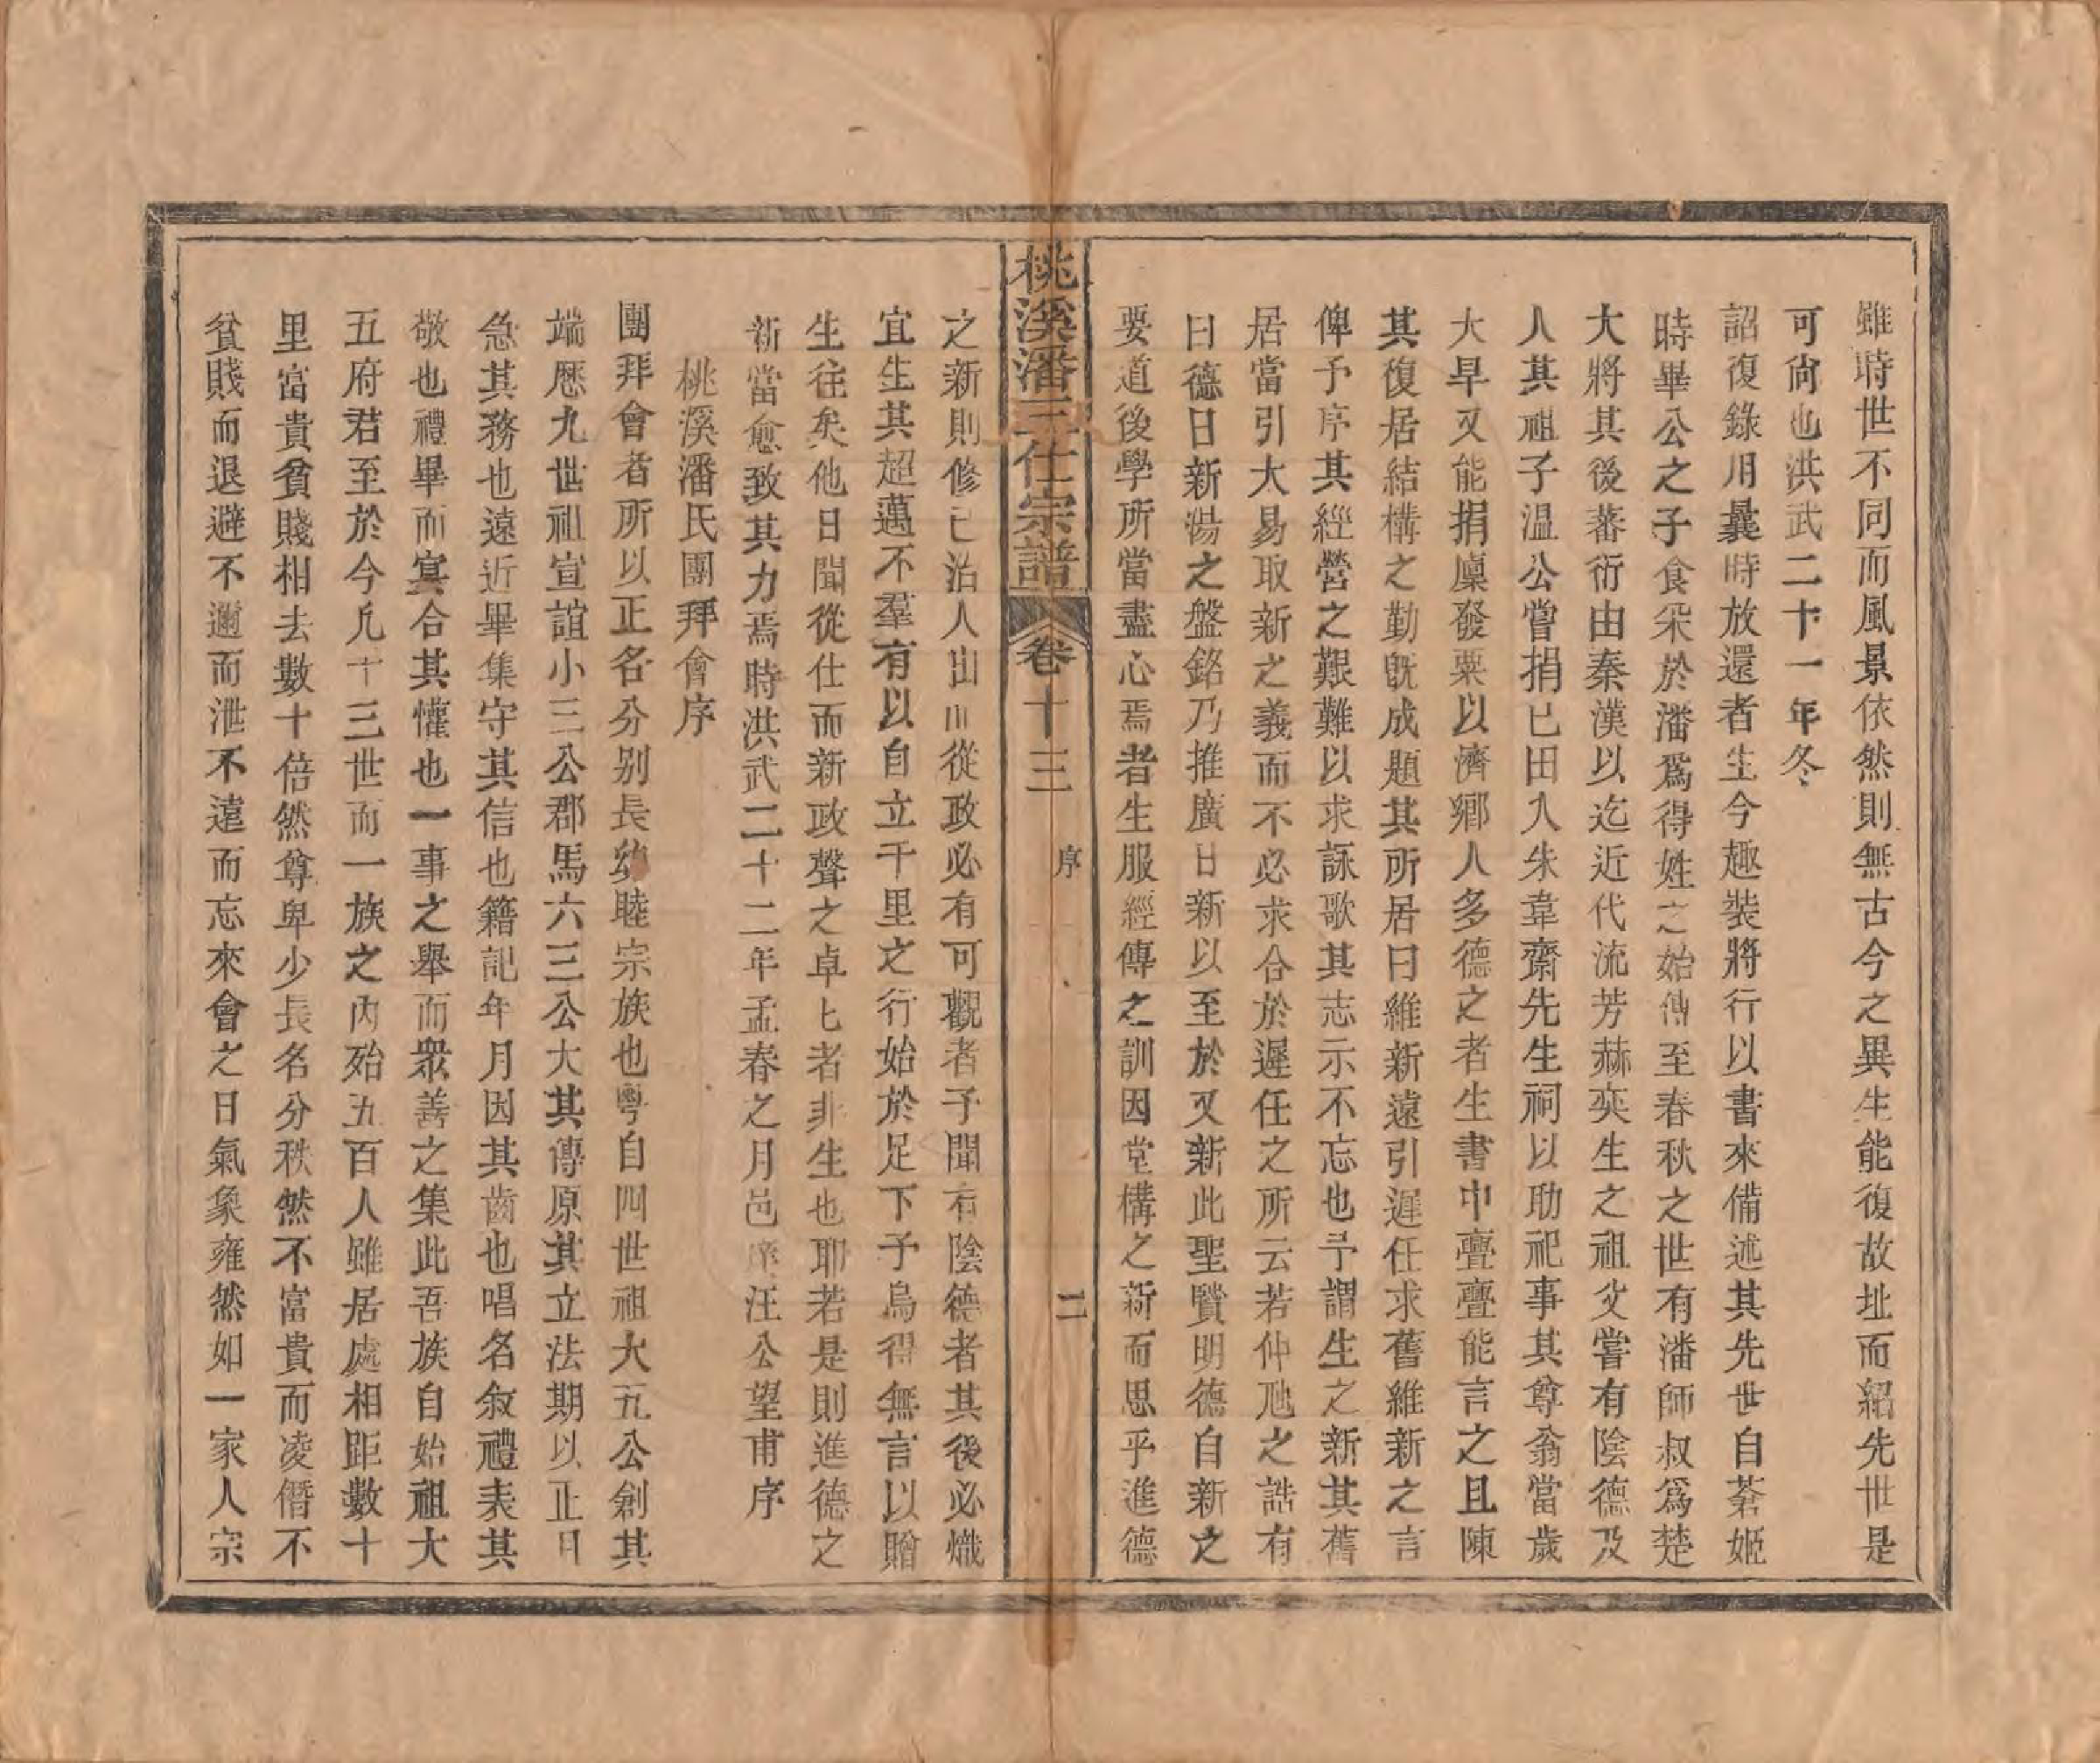 雖時世不同而風景依然則無古今之異生能復故址而紹先世是
可尙也洪武二十一年冬
詔復錄用曩時放還者生今趣裝將行以書來備述其先世自蒼姬
時畢公之子食采於潘爲得姓之始傳至春秋之世有潘師叔爲楚
大將其後蕃衍由秦漢以迄近代流芳赫奕生之祖父嘗有陰德及
人其祖子溫公嘗捐已田入朱韋齋先生祠以助祀事其尊翁當歲
大旱又能捐廩發粟以濟鄉人多德之者生書中亹亹能言之且陳
其復居結構之勤旣成題其所居曰維新遠引遲任求舊維新之言
俾予序其經營之艱難以求詠歌其志示不忘也予謂生之新其舊
居當引大易取新之義而不必求合於遲任之所云若仲虺之誥有
曰德日新湯之盤銘乃推廣日新以至於又新此聖賢明德自新之
要道後學所當盡心焉者生服經傳之訓因堂構之新而思乎進德
桃溪潘三仕宗譜 卷十三 序 二
之新則修已治人出而從政必有可觀者予聞有陰德者其後必熾
宜生其超邁不羣有以自立千里之行始於足下予烏得無言以贈
生往矣他日聞從仕而新政聲之卓匕者非生也耶若是則進德之
新當愈致其力焉時洪武二十二年孟春之月邑庠汪公望甫序
桃溪潘氏團拜會序
團拜會者所以正名分别長幼睦宗族也粵自四世祖大五公創其
端歷九世祖宣誼小三公郡馬六三公大其傳原其立法期以正日
急其務也遠近畢集守其信也籍記年月因其齒也唱名叙禮表其
敬也禮畢而宴合其懽也一事之舉而眾善之集此吾族自始祖大
五府君至於今凡十三世而一族之內殆五百人雖居處相距數十
里富貴貧賤相去數十倍然尊卑少長名分秩然不富貴而凌僭不
貧賤而退避不邇而泄不遠而忘來會之日氣象雍然如一家人宗